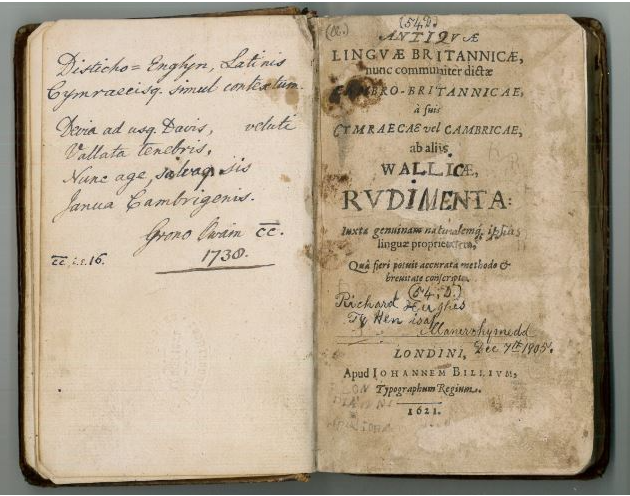 Disticho= Englyn, Latinis
Cymraecisq. simul contextum.
Devia ad usq. Davis, veluti
Vallata tenebris,
Nunc age, salvaq. sis
Janua Cambrigenis.
Grono Owain c̅c̅.
1738.
c̅c̅. i.e. 16.
(54,D)
ANTIQVÆ
LINGVÆ BRITANNICÆ,
nunc communiter dictæ
CAMBRO-BRITANNICAE,
à suis
CYMRAECAE vel CAMBRICAE,
ab aliis
WALLICÆ,
RVDIMENTA:
Iuxta genuinam naturalemq́; ipsius
linguæ proprietatem,
Quâ fieri potuit accurata methodo &
brevitate conscripta.
(54,D.)
Richard Hughes
Ty Hen isaf
Llanerchymedd
Dec 7th 1905.
LONDINI,
Apud IOHANNEM BILLIVM,
Typographum Regium.
1621.